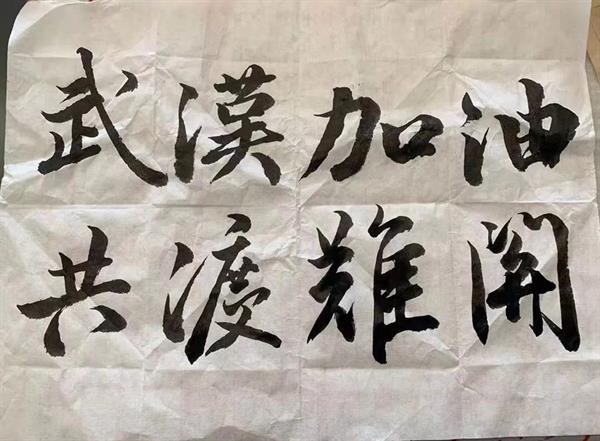 武漢加油
共渡難開